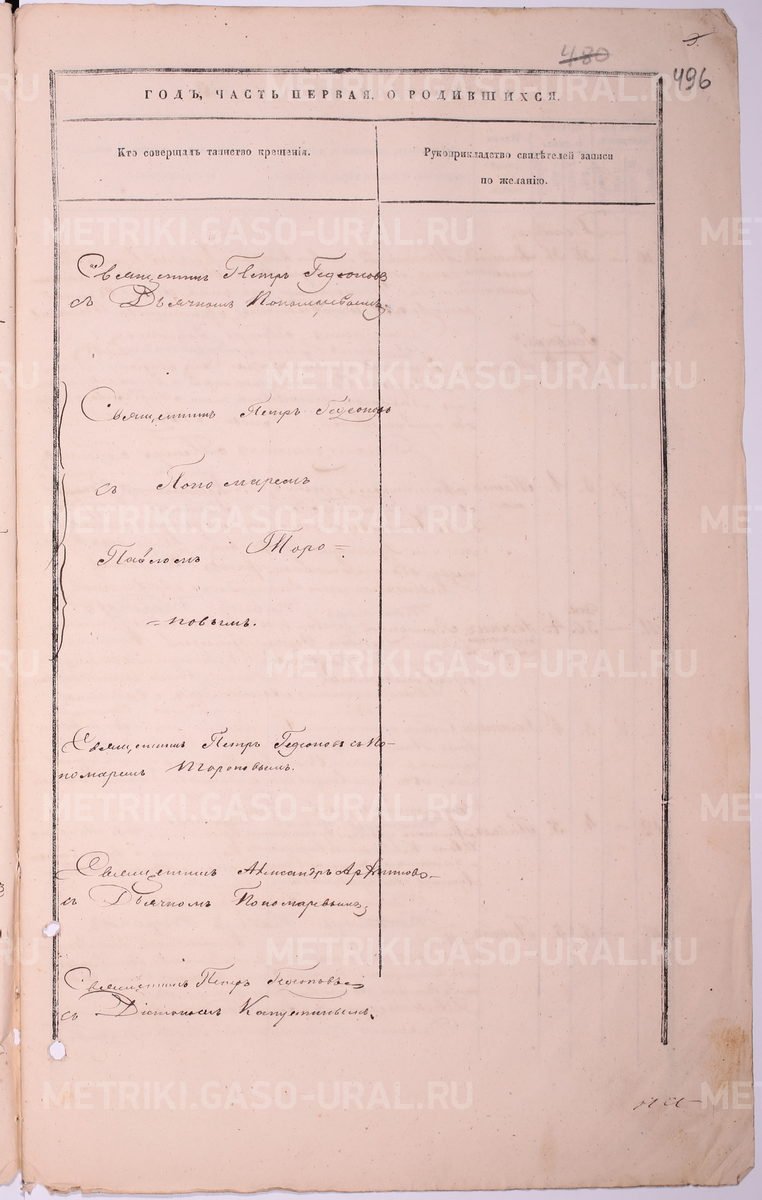 480
496
ГОДЪ, ЧАСТЬ ПЕРВАЯ. О РОДИВШИХСЯ.
Кто совершалъ таинство крещенія.
Рукоприкладство свидѣтелей записи
по желанію.
Священникъ Петръ
съ Дьячкомъ Пономаревымъ
Священникъ Петръ
съ Пономаремъ
Павломъ Торо=
=повымъ.
Священникъ Петръ съ По-
номаремъ Тороповымъ.
Священникъ Александръ
съ Дьячкомъ Пономаревымъ
Священникъ Петръ
съ Діакономъ Капустинымъ.
METRIKI.GASO-URAL.RU